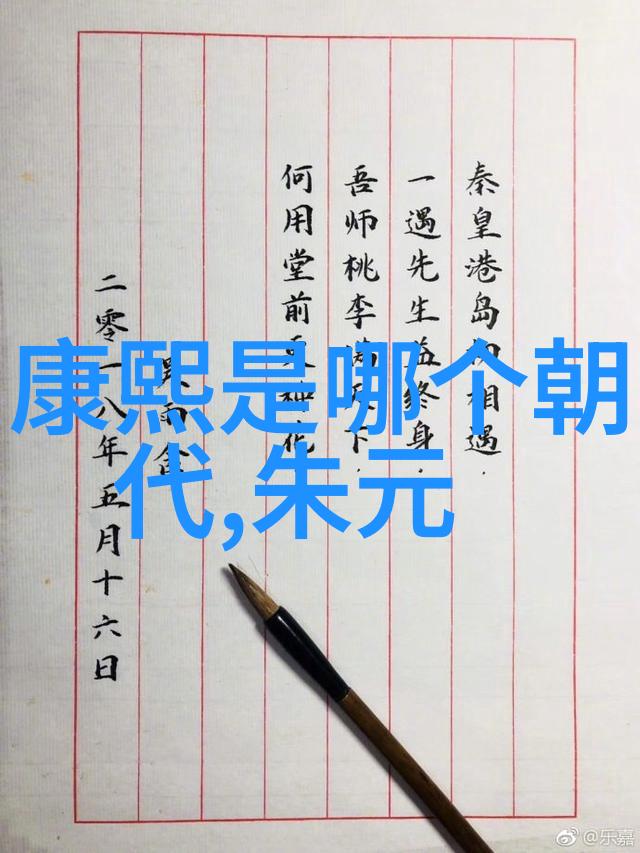 康熙是哪个朝
代,朱元
秦皇港岛初相遇.
一遇先生益終身.
吾师桃李满天下.
何用堂前更种花
雨
二零一八年五月十六日
@乐嘉